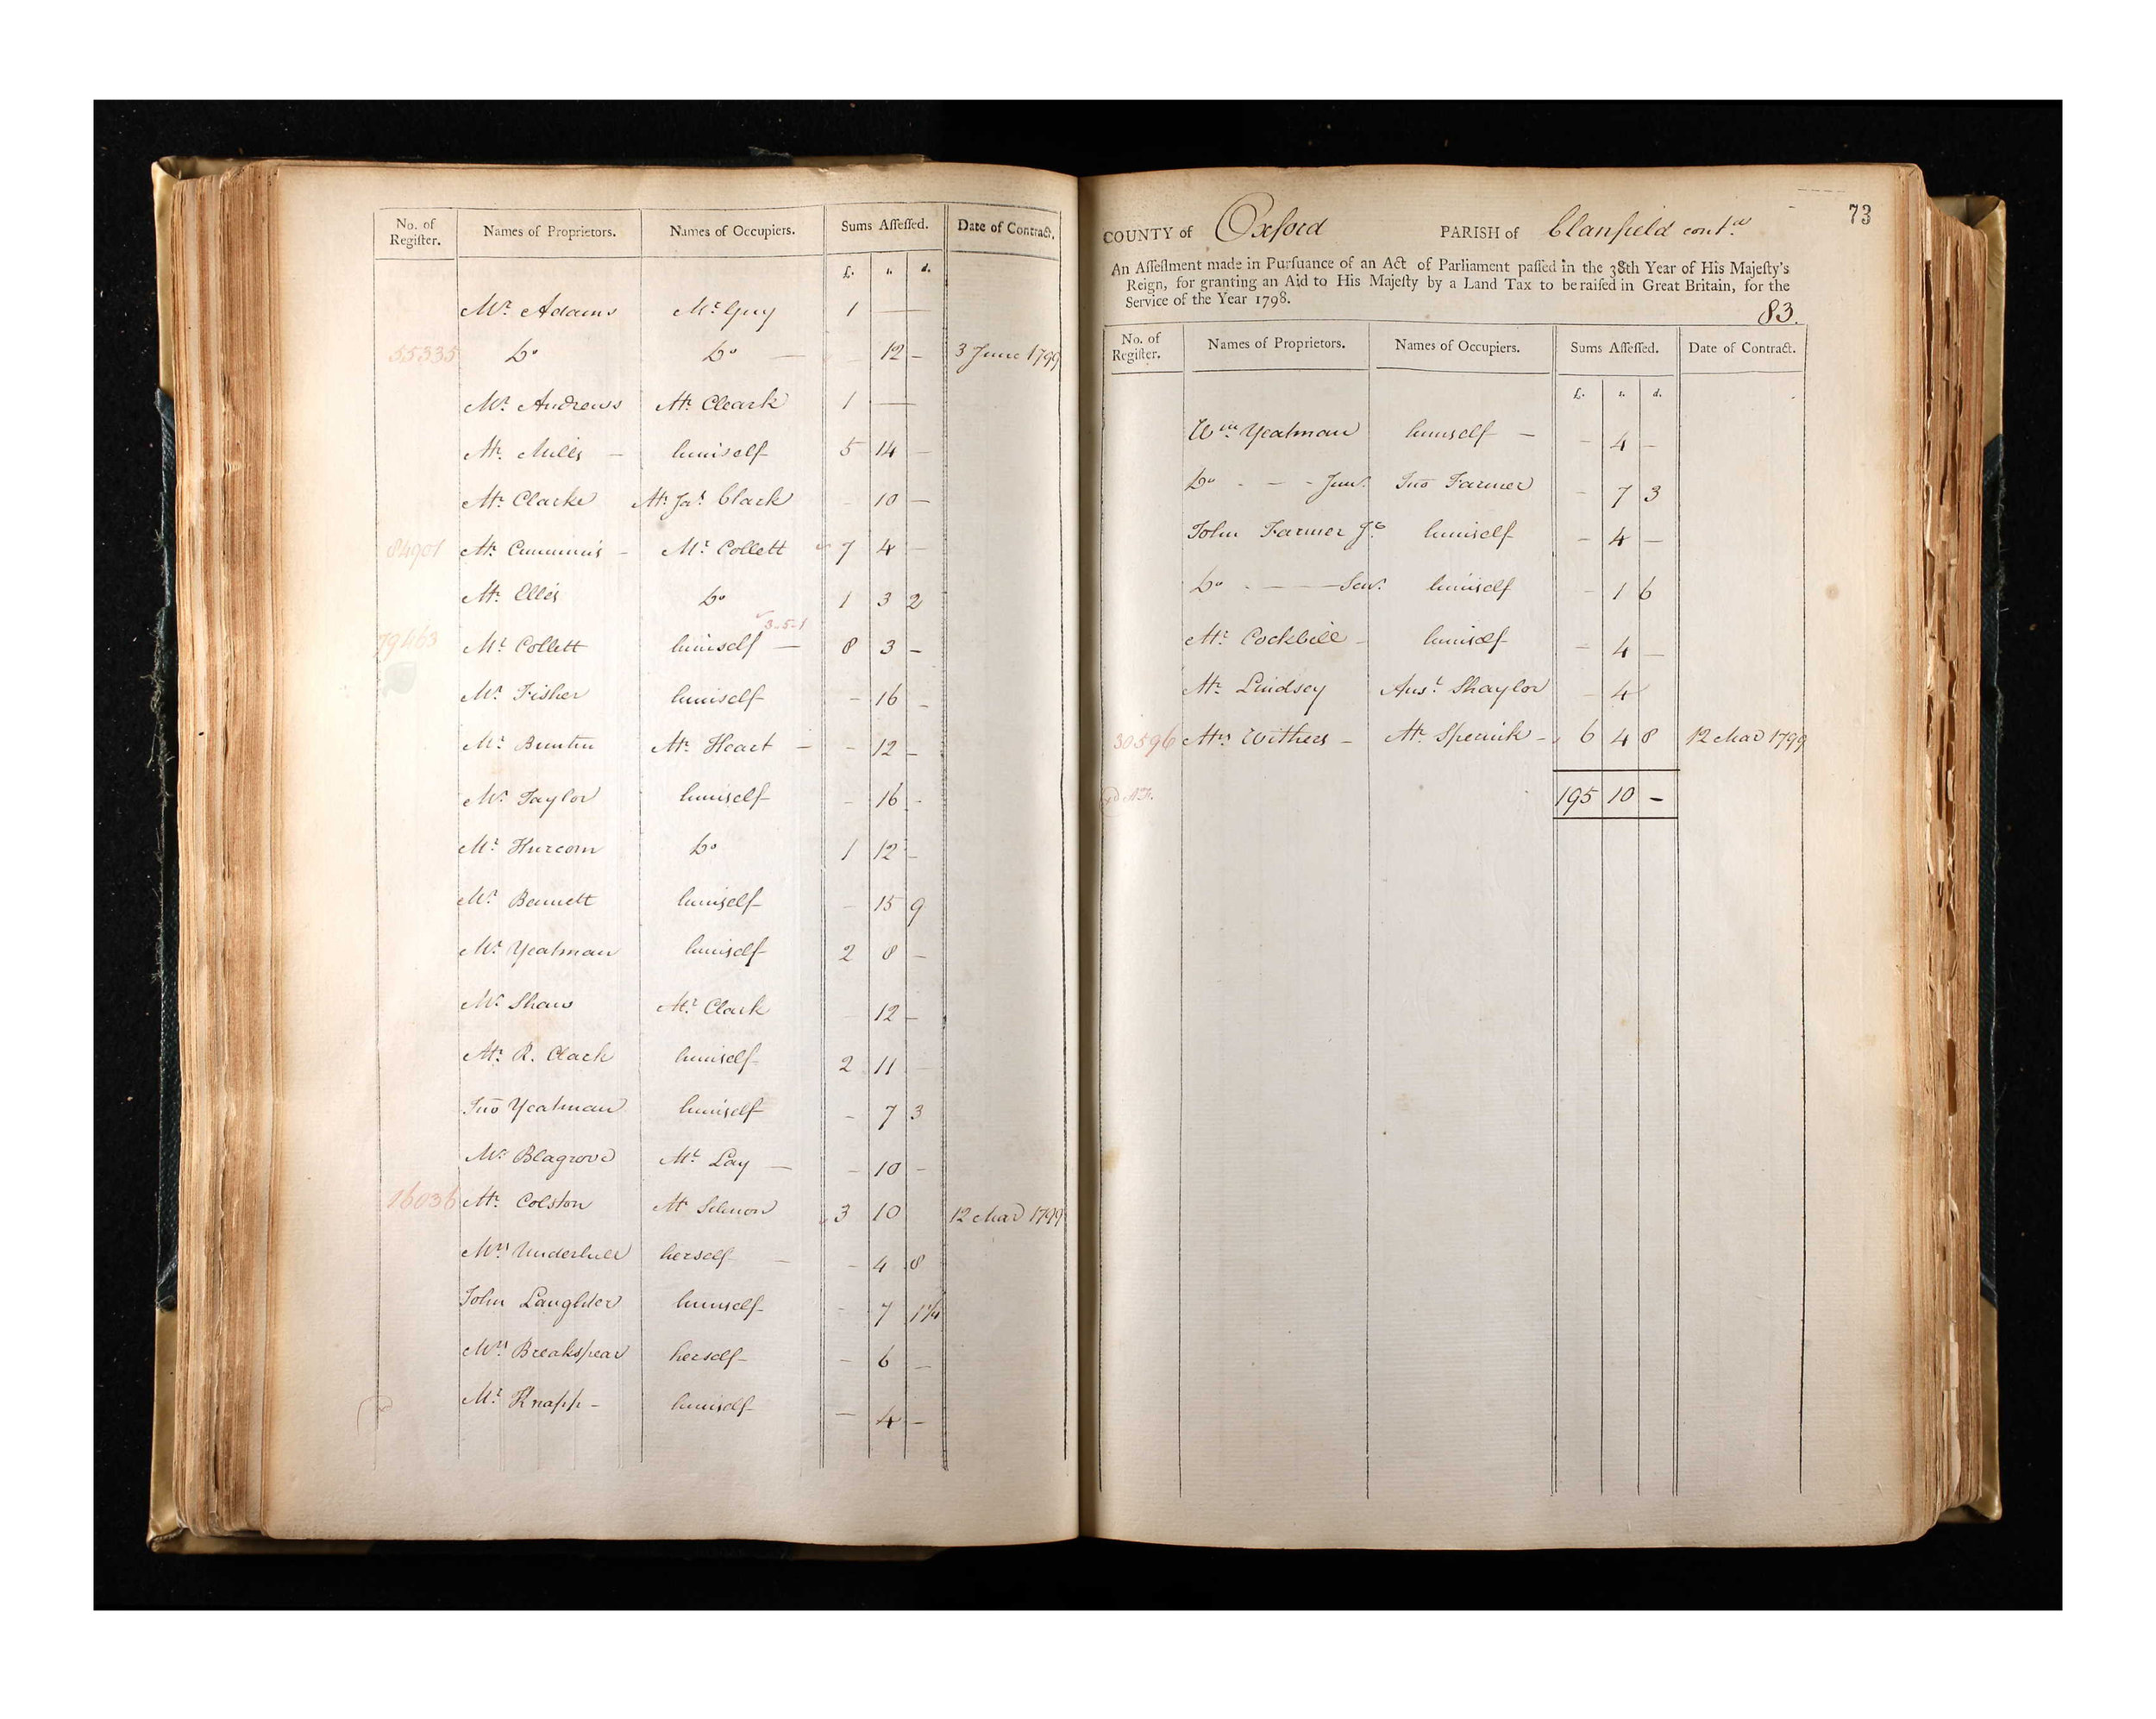 No. of Regiſter. Names of Proprietors. Names of Occupiers. Sums Aſſeſſed. Date of Contract.
£. s. d.
Mr. Adams Mr. Guy 1 —
55335 Do Do — 12 — 3 June 1799
Mr. Andrews Mr. Cleark 1 —
Mr. Mills — himself 5 14 —
Mr. Clarke Mr. Jas. Clark - 10 —
84901 Mr. Cummins - Mr. Collett 7 4 —
Mr. Ellis Do 1 3 2
3-5-1
79463 Mr. Collett himself — 8 3 -
Mr. Fisher himself - 16 -
Mr. Buntin Mr. Heart - - 12 -
Mr. Taylor himself - 16 -
Mr. Hurcom Do 1 12 -
Mr. Bennett himself - 15 9
Mr. Yeatman himself 2 8 -
Mr. Shaw Mr. Clark 12 -
Mr. R. Clack himself 2 11 -
Jno Yeatman himself - 7 3
Mr. Blagrove Mr. Lay — - 10 -
16036 Mr. Colston Mr 3 10 12 Mar 1799
Mrs. Underhill herself - - 4 8
John Laughter himself - 7 1¼
Mrs. Breakspear herself - 6 —
Mr. Knapp - himself — 4 —
73
COUNTY of Oxford PARISH of Clanfield contd
An Aſſeſſment made in Purſuance of an Act of Parliament paſſed in the 38th Year of His Majeſty's
Reign, for granting an Aid to His Majeſty by a Land Tax to be raiſed in Great Britain, for the
Service of the Year 1798.
83.
No. of Regiſter. Names of Proprietors. Names of Occupiers. Sums Aſſeſſed. Date of Contract.
£. s. d.
Wm. Yeatman himself — - 4 -
Do - - - Junr. Jno Farmer - 7 3
John Farmer Jr. himself - 4 —
Do - — Senr. himself - 1 6
Mr. Cockbill - himself - 4 —
Mr. Lindsey Ansl. Shaylor - 4
30596 Mrs Withers - Mr. - 6 4 8 12 Mar 1799
195 10 -